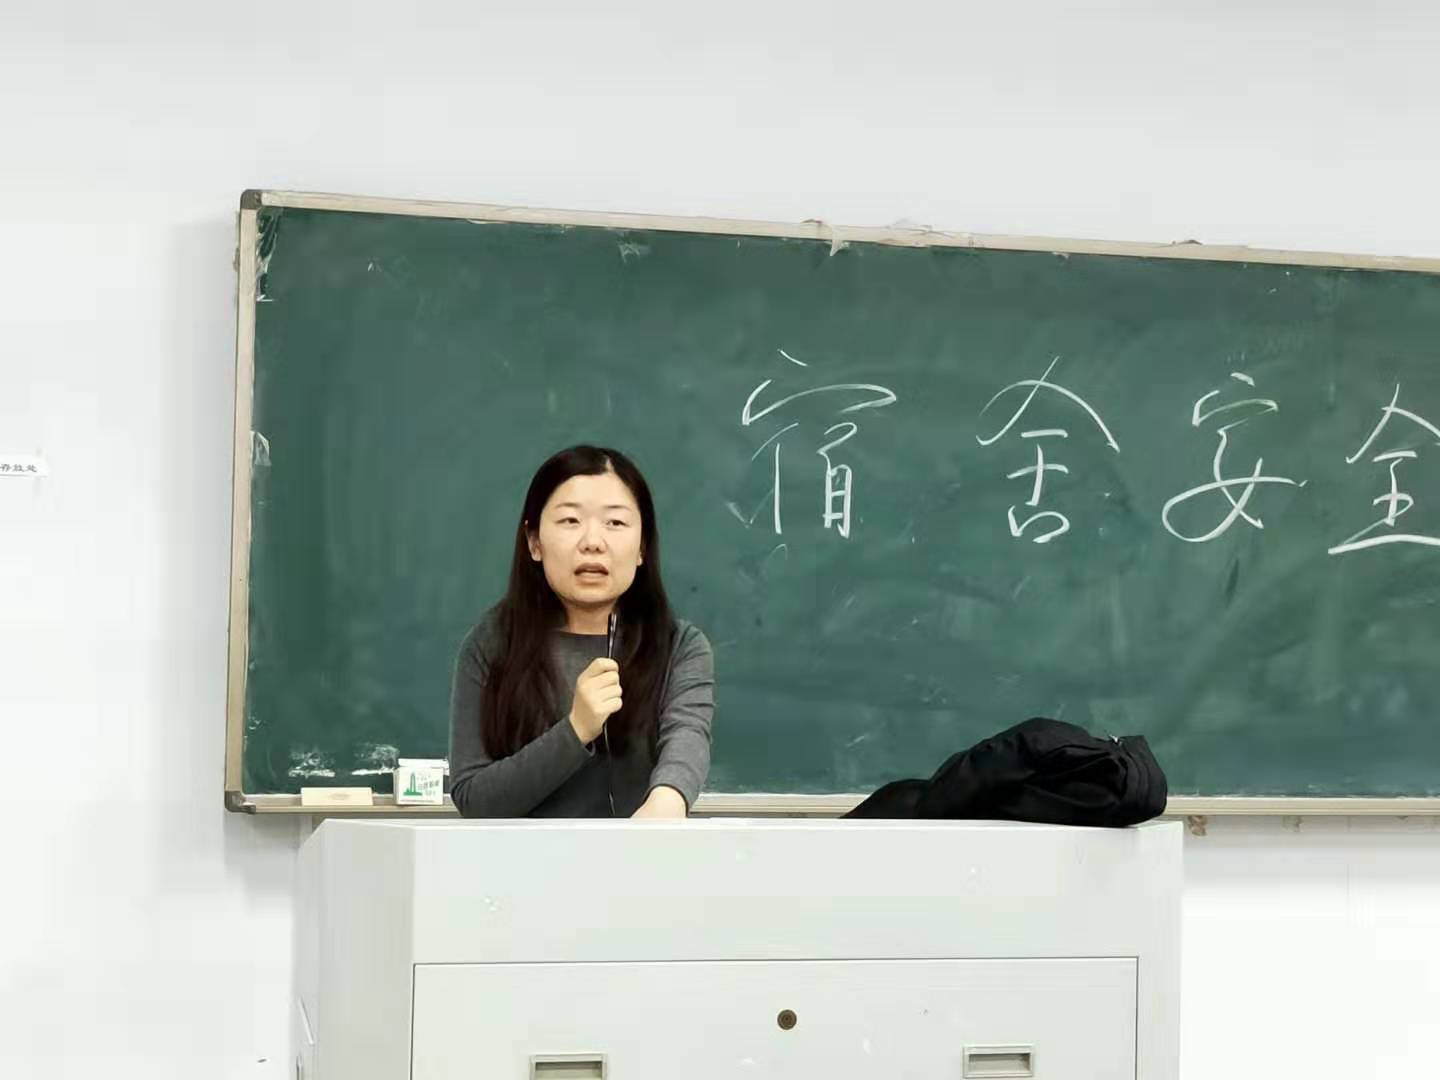 宿舍安全
存放处